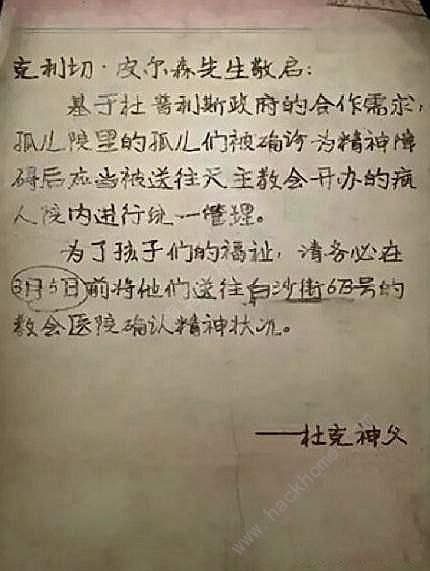 克利切·皮尔森先生敬启:
基于杜普利斯政府的合作需求,
孤儿院里的孤儿们被确诊为精神障
碍后应当被送往天主教会开办的病
人院内进行统一管理。
为了孩子们的福祉,请务必在
3月5日前将他们送往白沙街673号的
教会医院确认精神状况。
——杜克神父
www.hackhome.com